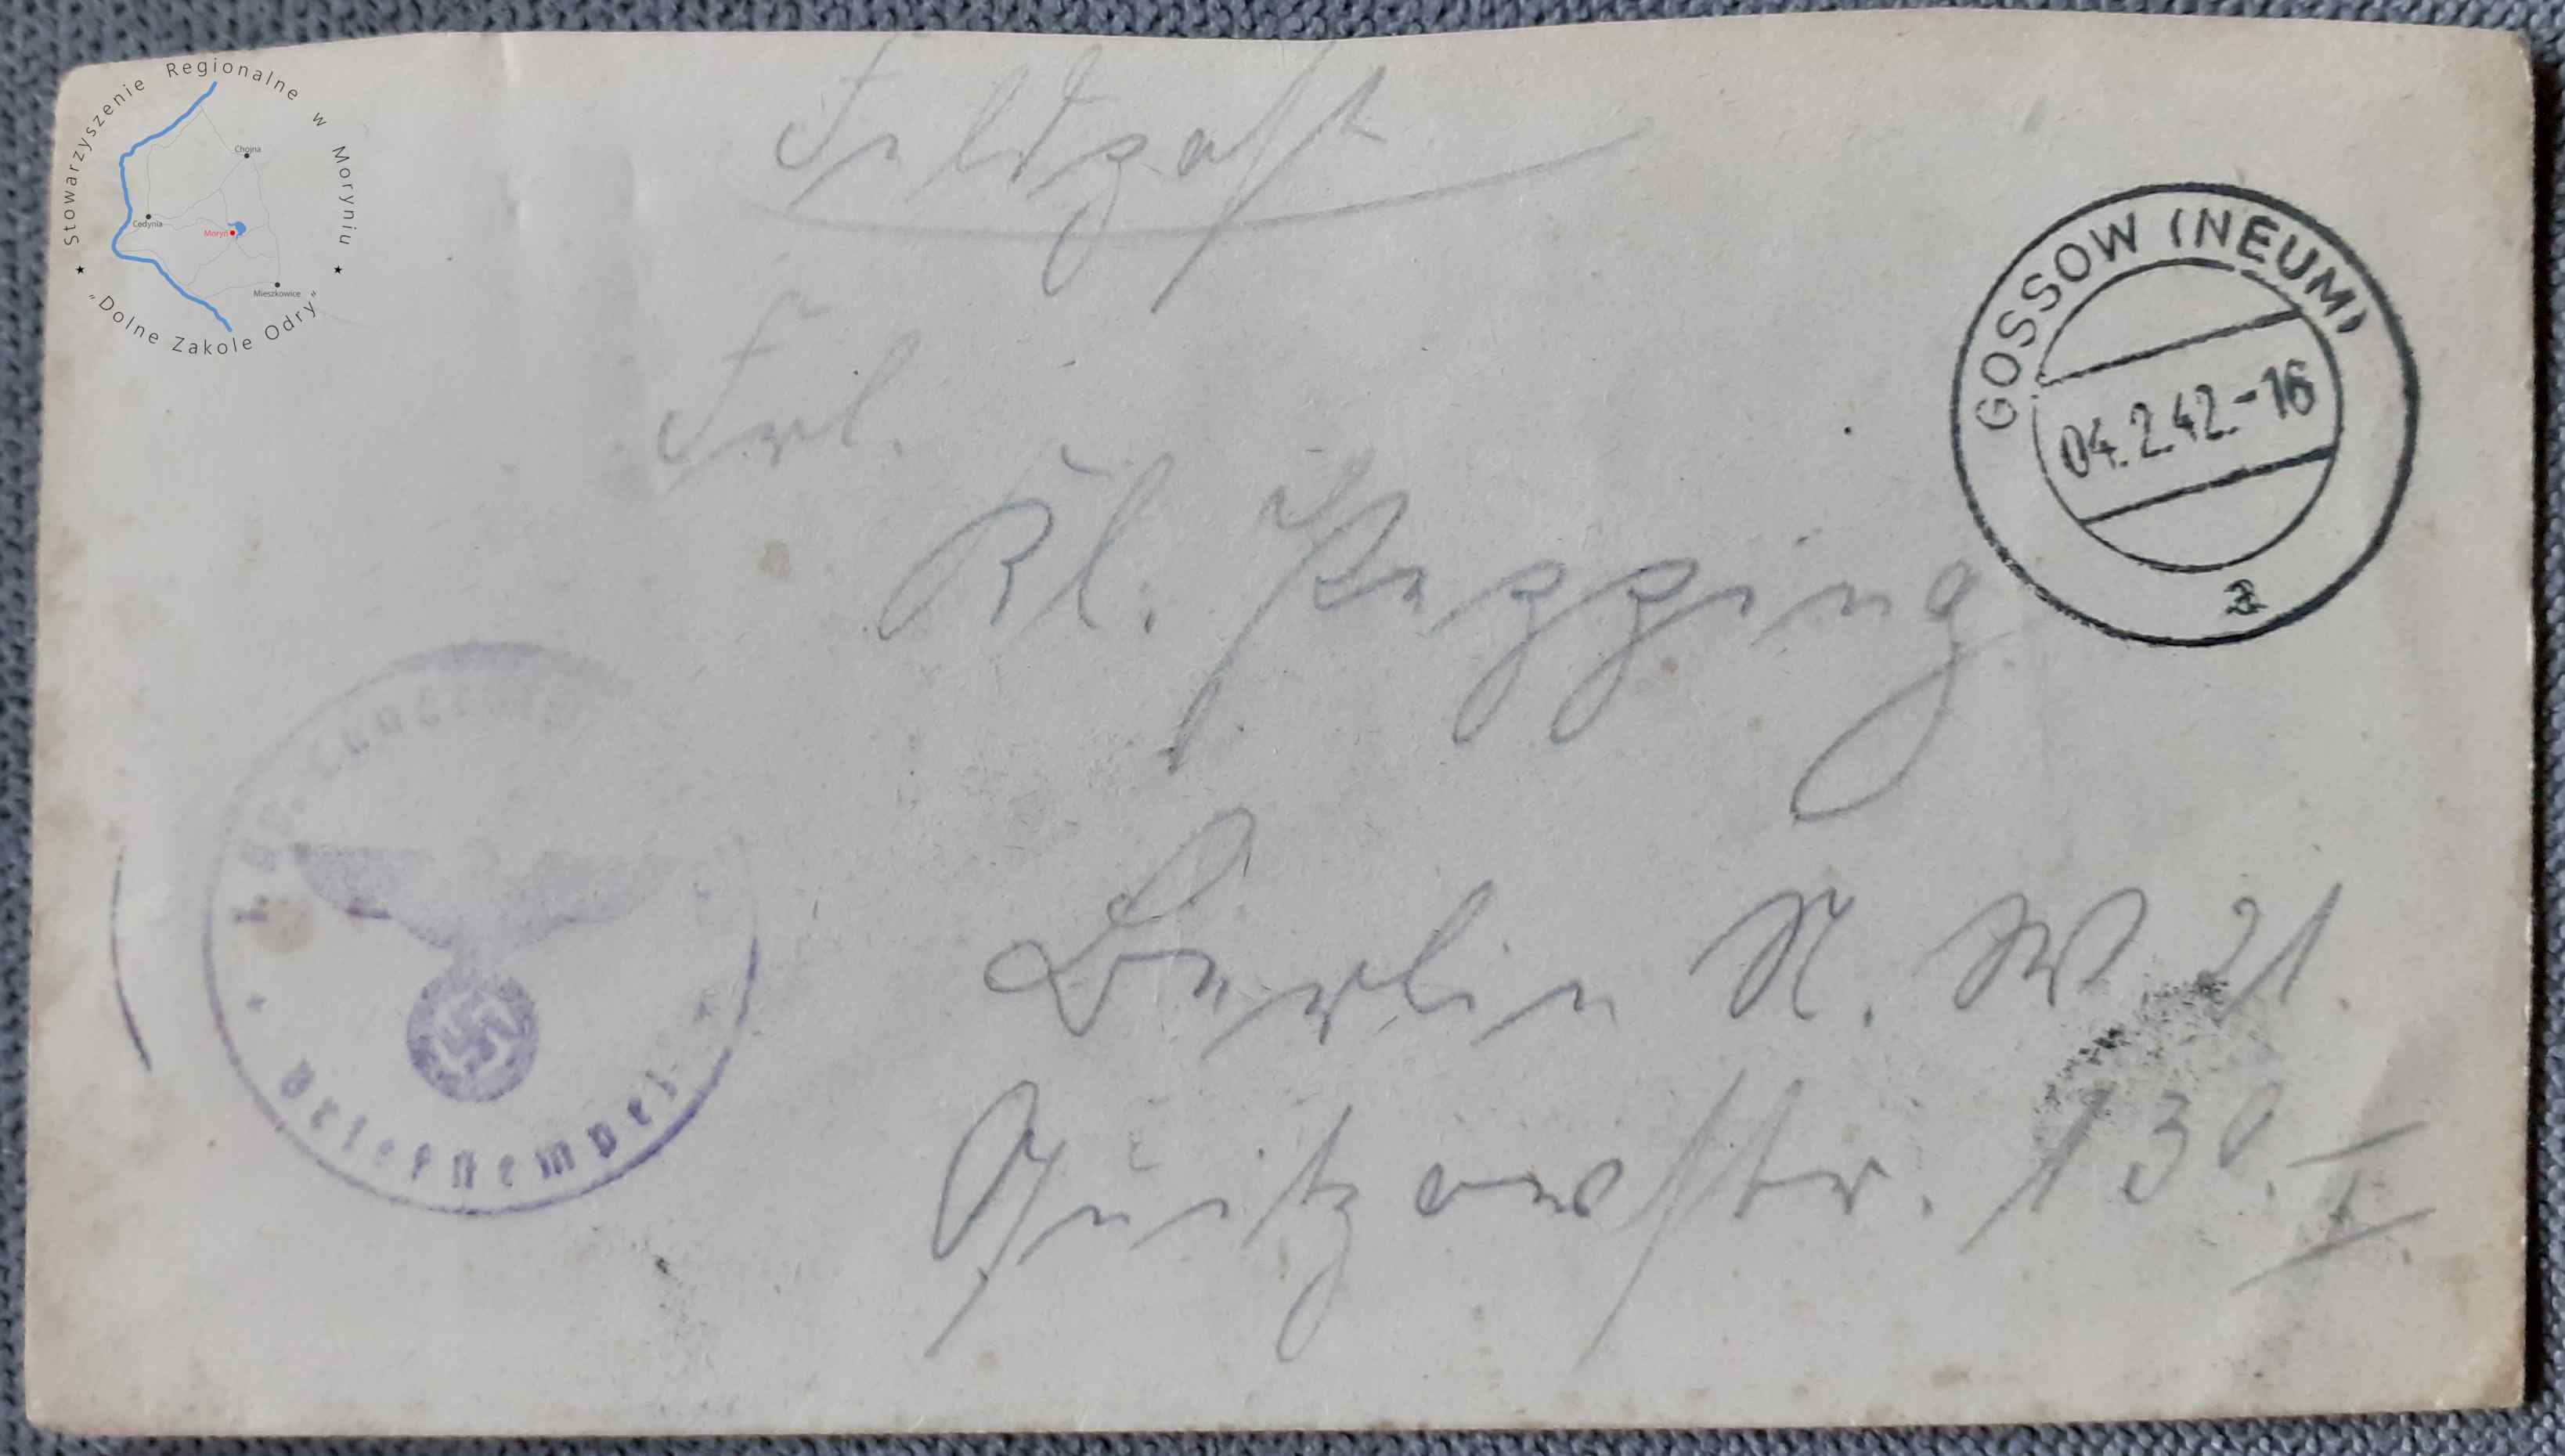 Stowarzyszenie Regionalne w Moryniu
Chojna
Cedynia
Moryń
Mieszkowice
"Dolne Zakole Odry"
Feldpost
GOSSOW (NEUM)
04.2.42.-16
a
Frl.
Kl. Pepping
Berlin N. W 21.
Quitzowstr. 130. I
Briefstempel